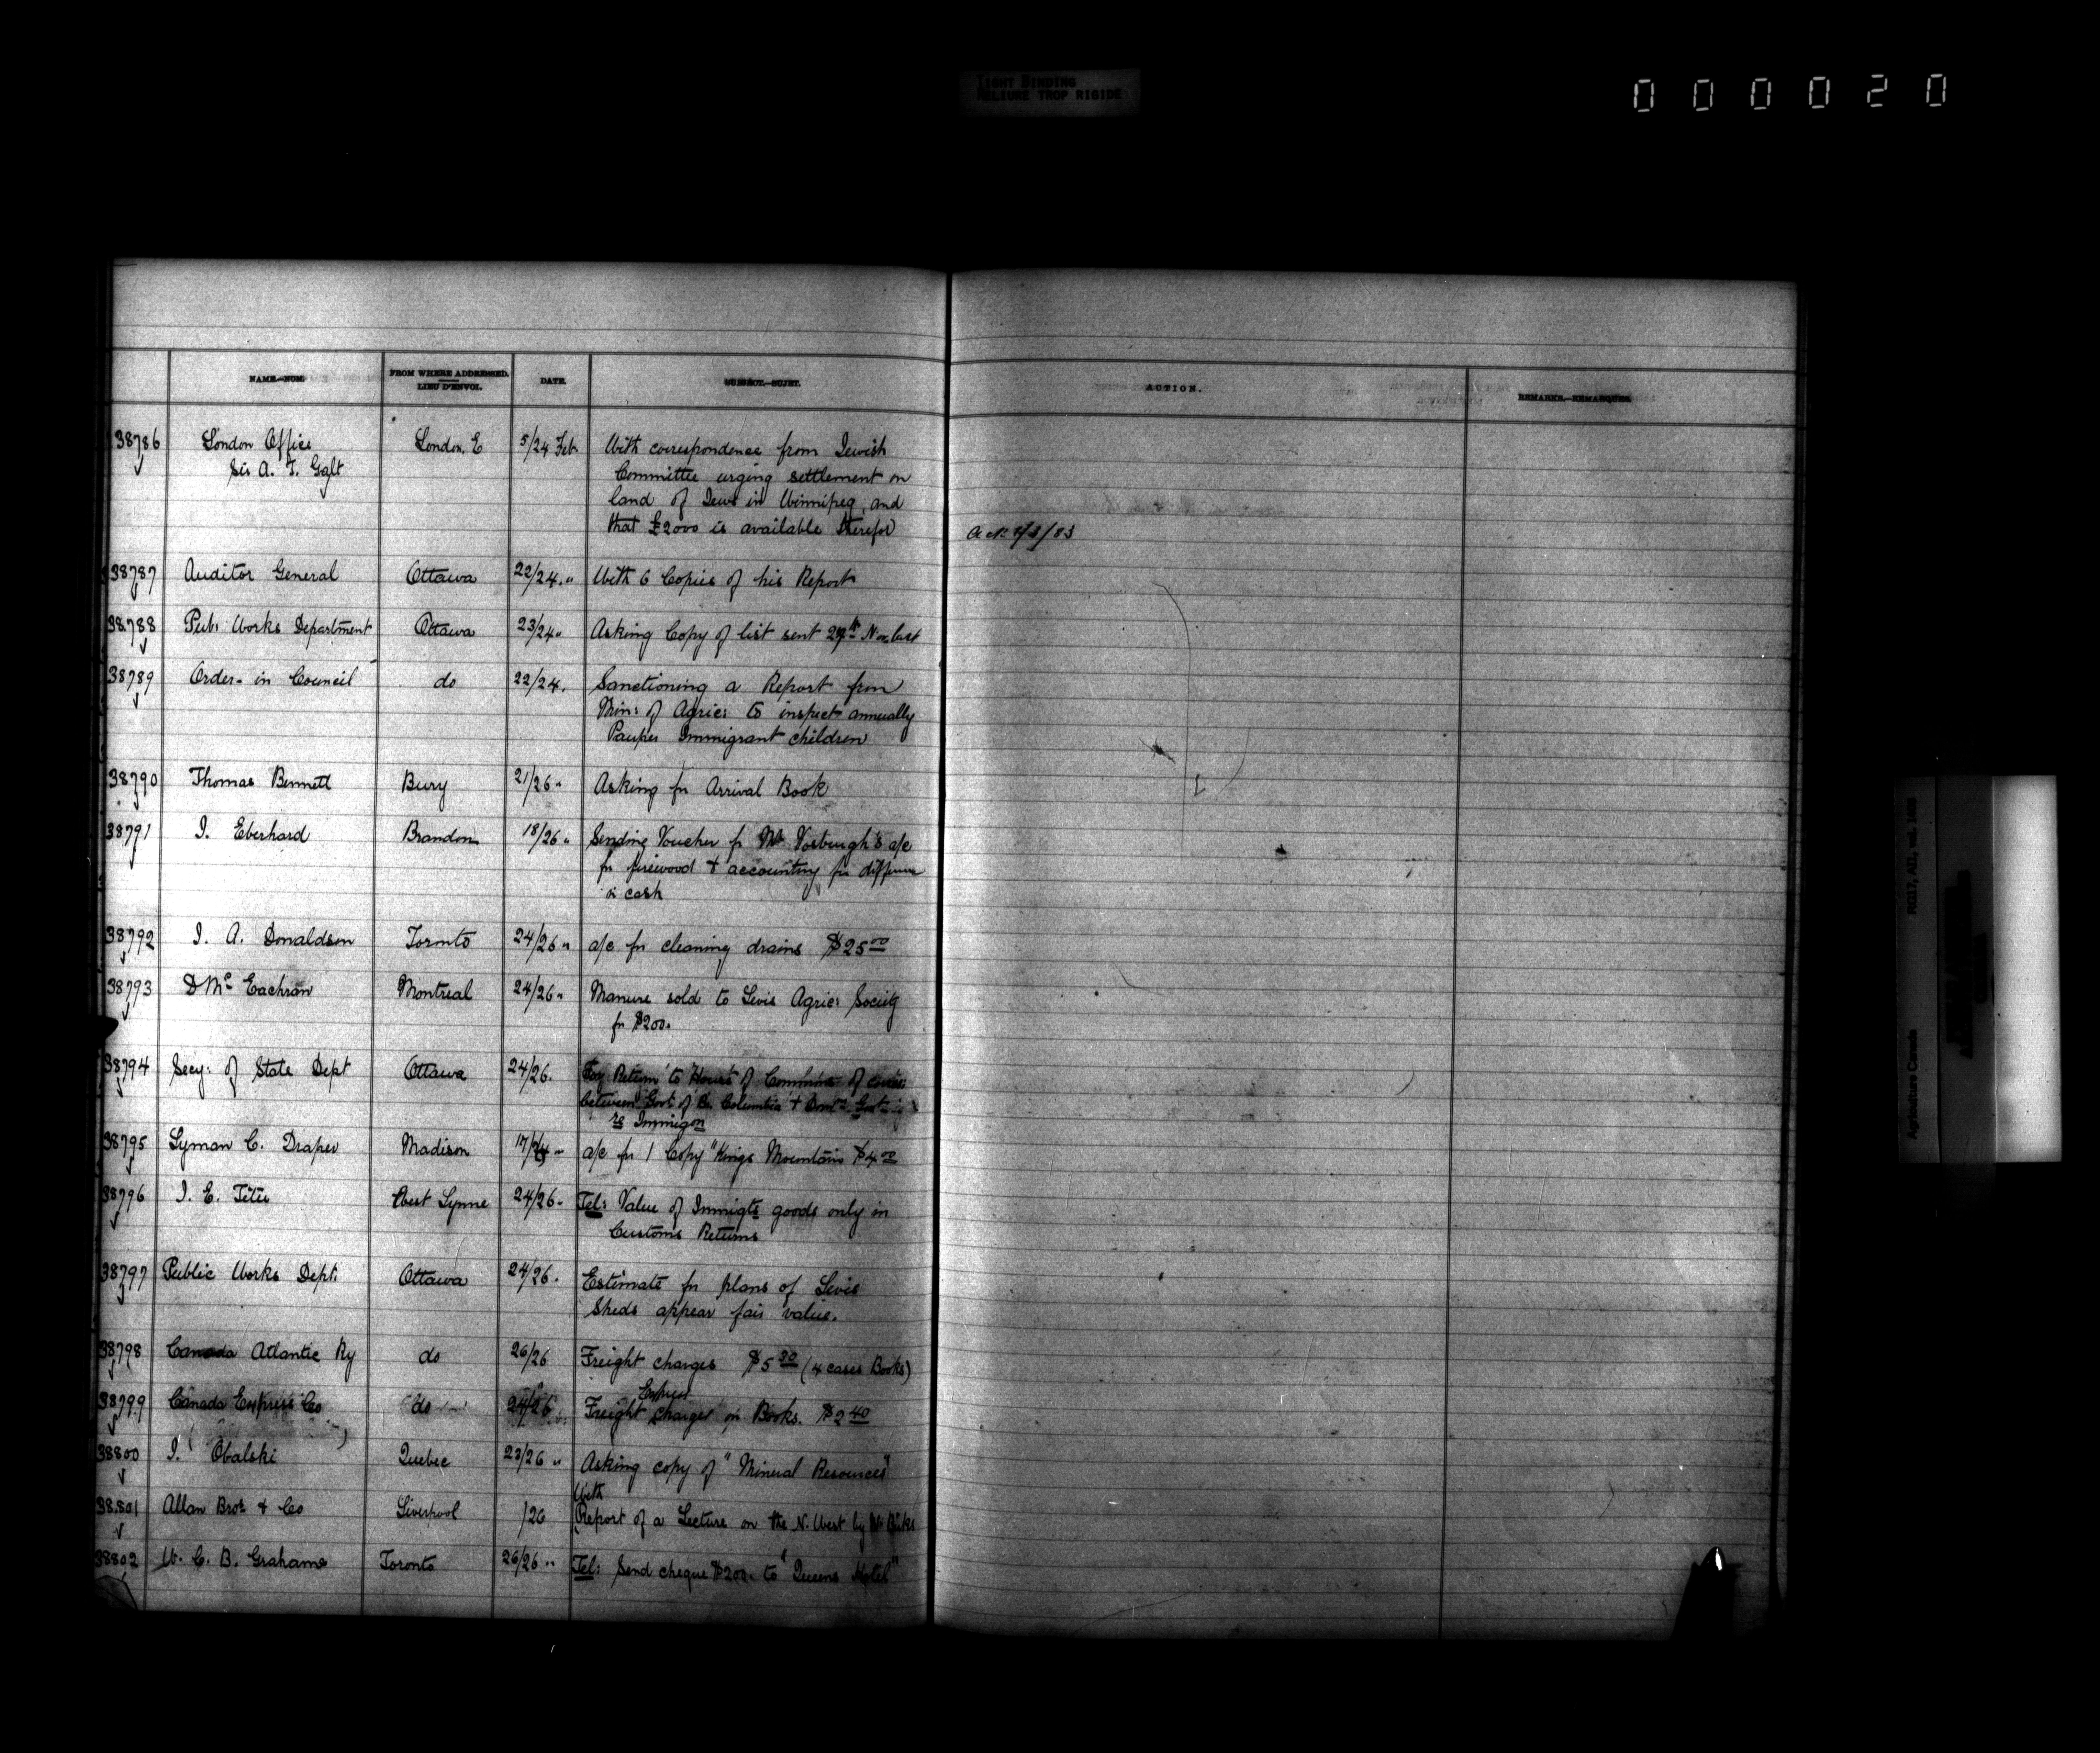 TIGHT BINDING
RELIURE TROP RIGIDE
000020
NAME.—NOM. FROM WHERE ADDRESSED. LIEU D'ENVOI. DATE. SUBJECT.—SUJET. ACTION. REMARKS.—REMARQUES.
38786 London Office London, E 5/24 Feb With correspondence from Jewish
Sir A. T. Galt Committee urging settlement on
land of Jews in Winnipeg, and
that £2000 is available therefor
38787 Auditor General Ottawa 22/24 " With 6 Copies of his Report
38788 Pub: Works Department Ottawa 23/24 " Asking Copy of list sent Nov last
38789 Order- in Council do 22/24. Sanctioning a Report from
Min: of Agric: to inspect annually
Pauper Immigrant children
38790 Thomas Bennett Bury 21/26 " Asking for Arrival Book
38791 J. Eberhard Brandon 18/26 " Sending Voucher for Mr Vosburgh's a/c
for firewood + accounting for difference
in cash
38792 J. A. Donaldson Toronto 24/26 " a/c for cleaning drains $25 00
38793 D Mc Eachran Montreal 24/26 " Manure sold to Levis Agric: Society
for $200.
38794 Secy: of State Dept Ottawa 24/26. For Return to House of Commons of corres:
between Govt of Br. Columbia + Domn. Govt
re Immigon
38795 Lyman C. Draper Madison a/c for 1 Copy "Kings Mountain $4 00
38796 J. E. Têtu West Lynne 24/26 " Tel: Value of Immigts goods only in
Customs Returns
38797 Public Works Dept: Ottawa 24/26. Estimate for plans of Levis
Sheds appear fair value.
38798 Canada Atlantic Ry do 26/26 Freight charges $5 30 (4 cases Books)
Express
38799 Canada Express Co do 24/26 Freight charges on Books. $2 40
38800 J. Obalski Quebec 23/26 " Asking copy of "Mineral Resources"
With
38801 Allan Bros. & Co Liverpool /26 Report of a Lecture on the N. West by Mr
38802 W. C. B. Grahame Toronto 26/26 " Tel: Send cheque $200. to "Queens Hotel"
Agriculture Canada RG17, AII, vol.